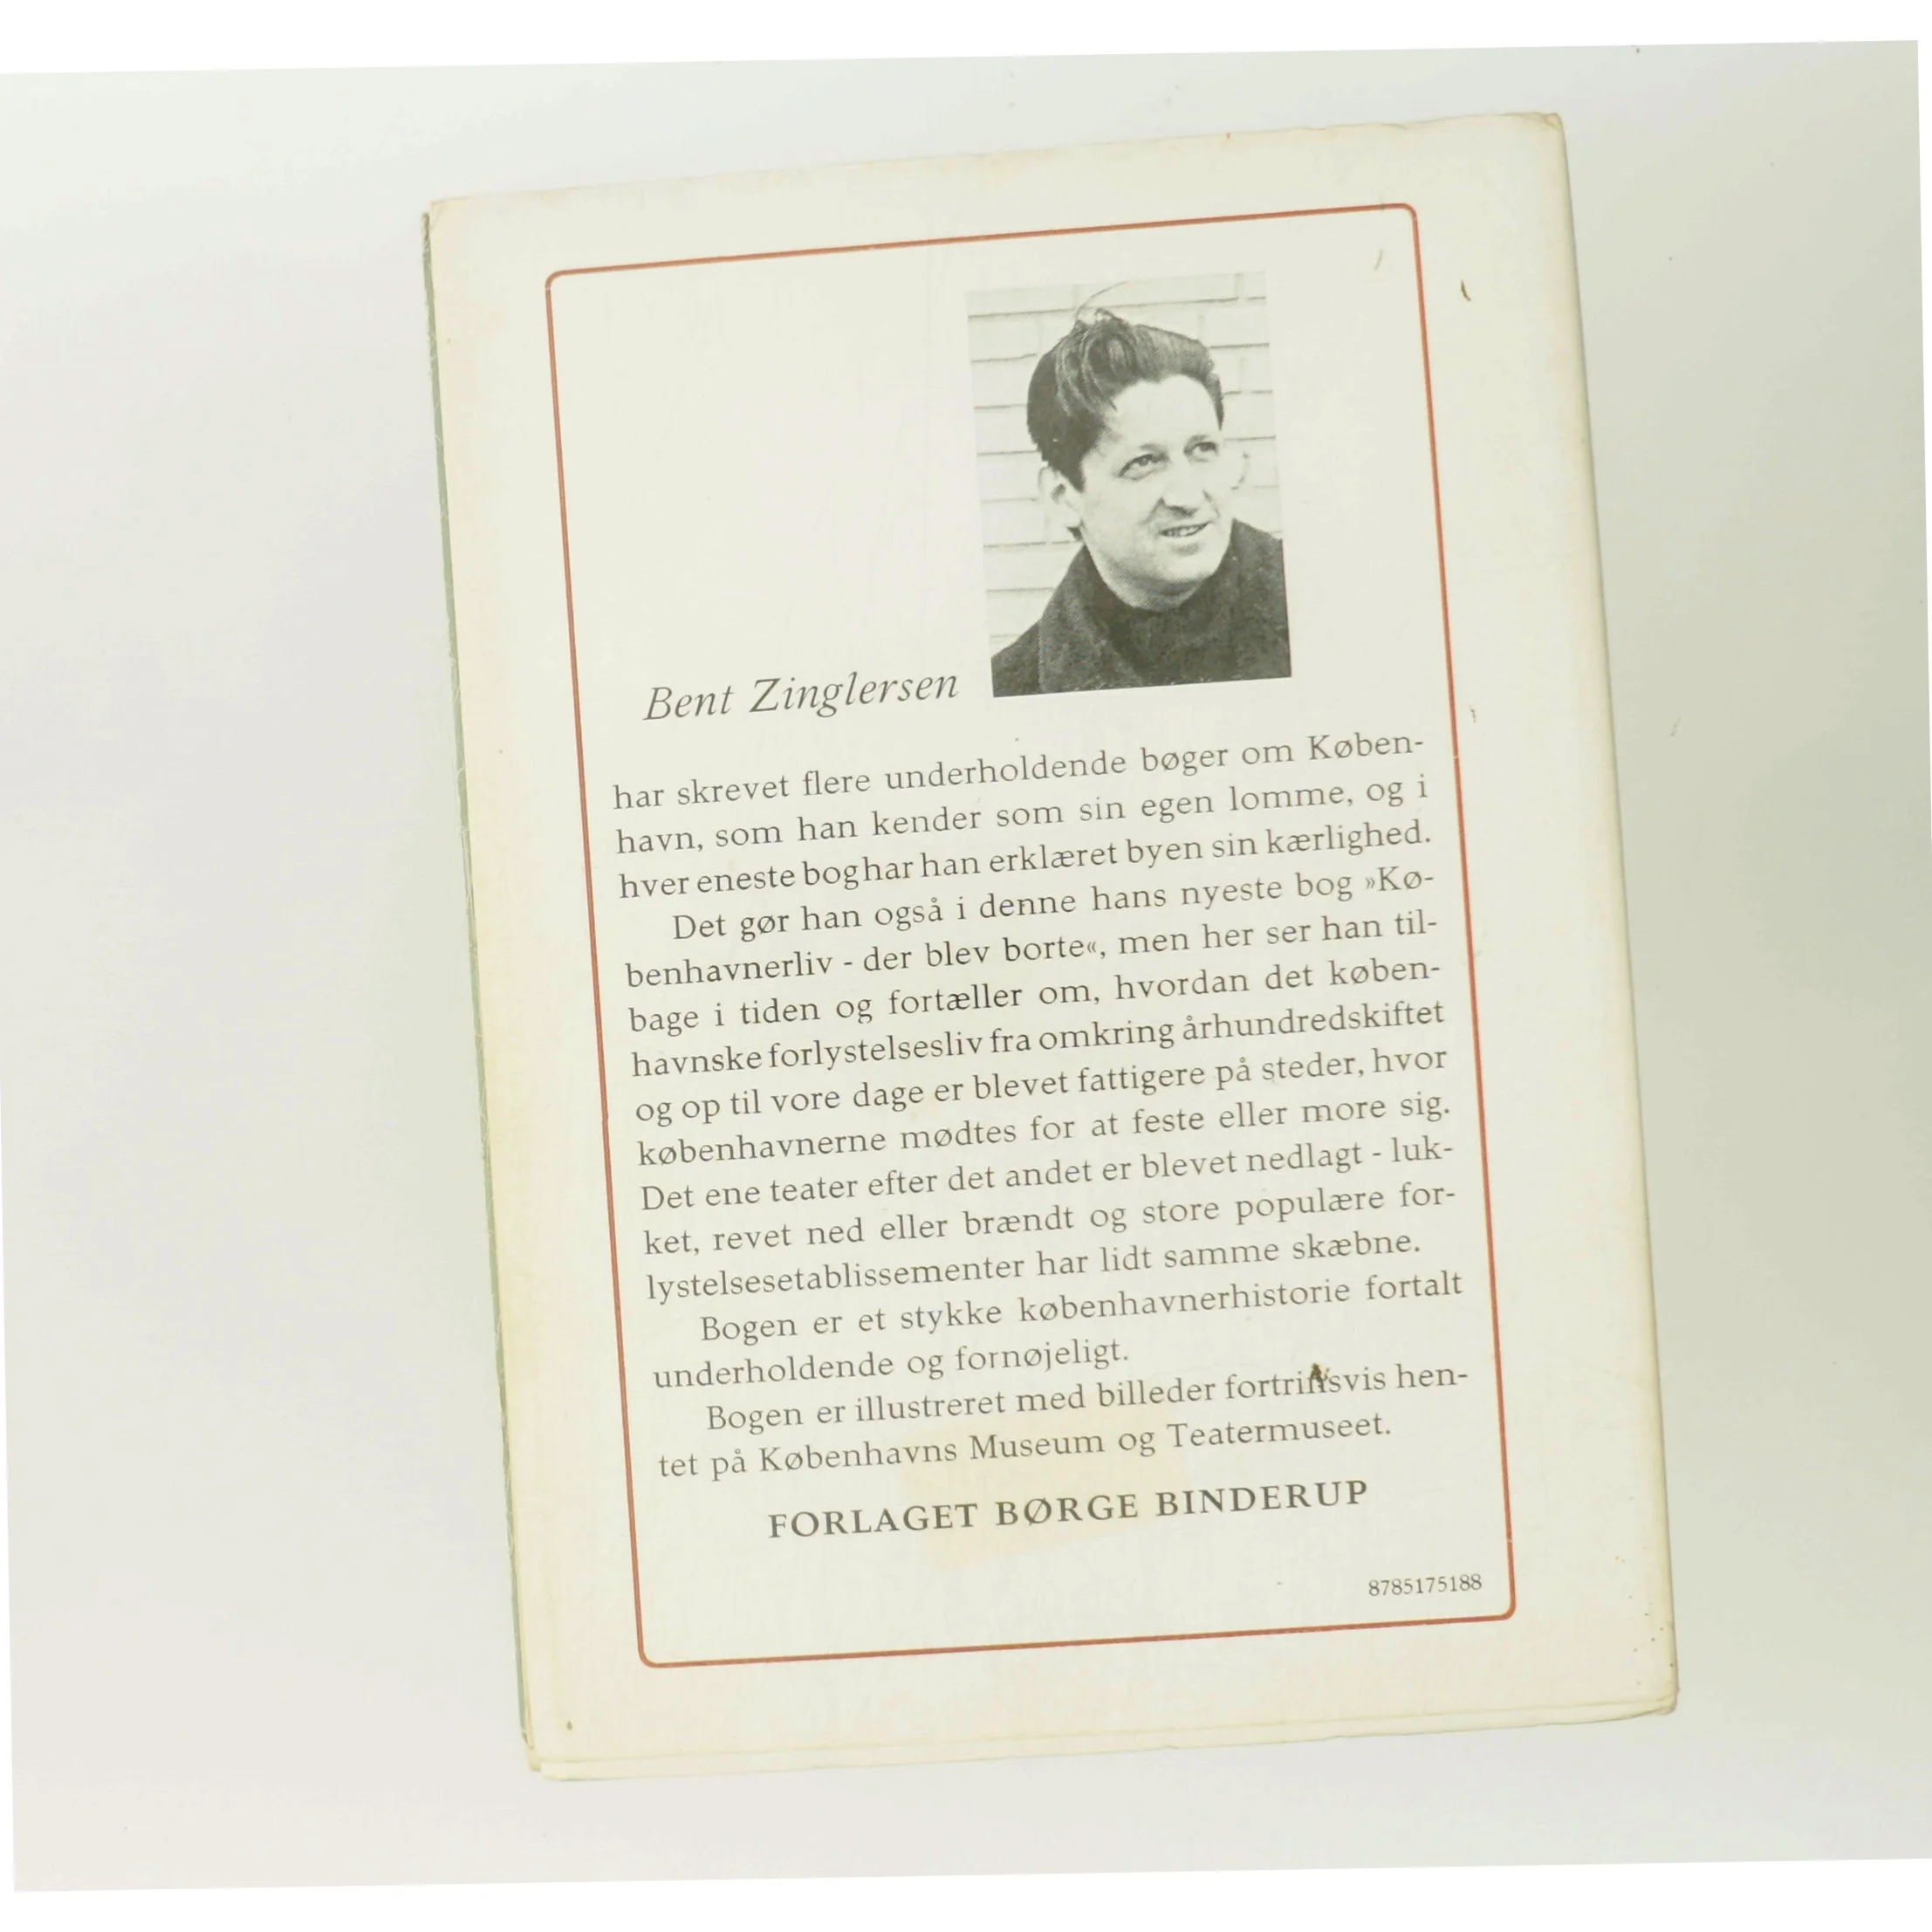 Bent Zinglersen
har skrevet flere underholdende bøger om Køben-
havn, som han kender som sin egen lomme, og i
hver eneste bog har han erklæret byen sin kærlighed.
Det gør han også i denne hans nyeste bog »Kø-
benhavnerliv - der blev borte«, men her ser han til-
bage i tiden og fortæller om, hvordan det køben-
havnske forlystelsesliv fra omkring århundredskiftet
og op til vore dage er blevet fattigere på steder, hvor
københavnerne mødtes for at feste eller more sig.
Det ene teater efter det andet er blevet nedlagt - luk-
ket, revet ned eller brændt og store populære for-
lystelsesetablissementer har lidt samme skæbne.
Bogen er et stykke københavnerhistorie fortalt
underholdende og fornøjeligt.
Bogen er illustreret med billeder fortrinsvis hen-
tet på Københavns Museum og Teatermuseet.
FORLAGET BØRGE BINDERUP
8785175188